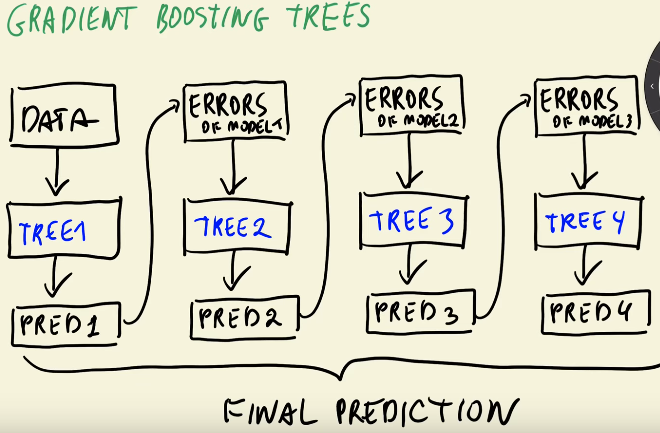 GRADIENT BOOSTING TREES
DATA
TREE1
PRED1
ERRORS
OF MODEL1
TREE2
PRED2
ERRORS
OF MODEL2
TREE3
PRED3
ERRORS
OF MODEL3
TREE4
PRED4
FINAL PREDICTION